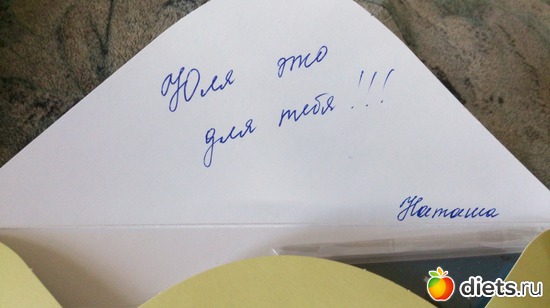 Юля это
для тебя!!!
Наташа
diets.ru